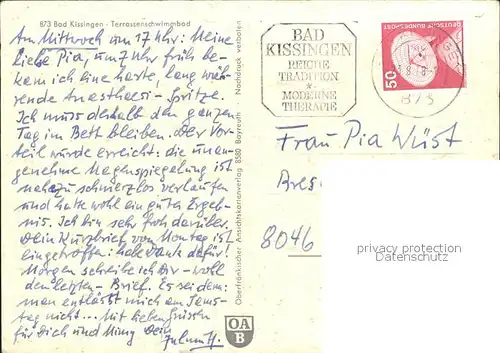 873 Bad Kissingen - Terrassenschwimmbad
Am Mittwoch um 17 Uhr: Meine
liebe Pia, um 7 Uhr früh be-
kam ich eine harte, lang wäh-
rende Anästhesi-Spritze.
Ich muss deshalb den ganzen
Tag im Bett bleiben. Der Vor-
teil wurde erreicht: die unan-
genehme Magenspiegelung ist
nahezu schmerzlos verlaufen
und hatte wohl ein gutes Ergeb-
nis. Ich bin sehr froh darüber.
Dein Kurzbrief vom Montag ist
eingetroffen: hab Dank dafür!
Morgen schreibe ich Dir - wohl
den letzten - Brief. Es sei denn:
man entlässt mich am Sams-
tag nicht... Mit lieben Grüssen
für Dich und Dein
Nachdruck verboten
Oberfränkischer Ansichtskartenverlag 8580 Bayreuth
OA
B
BAD
KISSINGEN
REICHE
TRADITION
*
MODERNE
THERAPIE
873
DEUTSCHE BUNDESPOST
50
Frau Pia Wüst
Bres
8046
privacy protection
Datenschutz